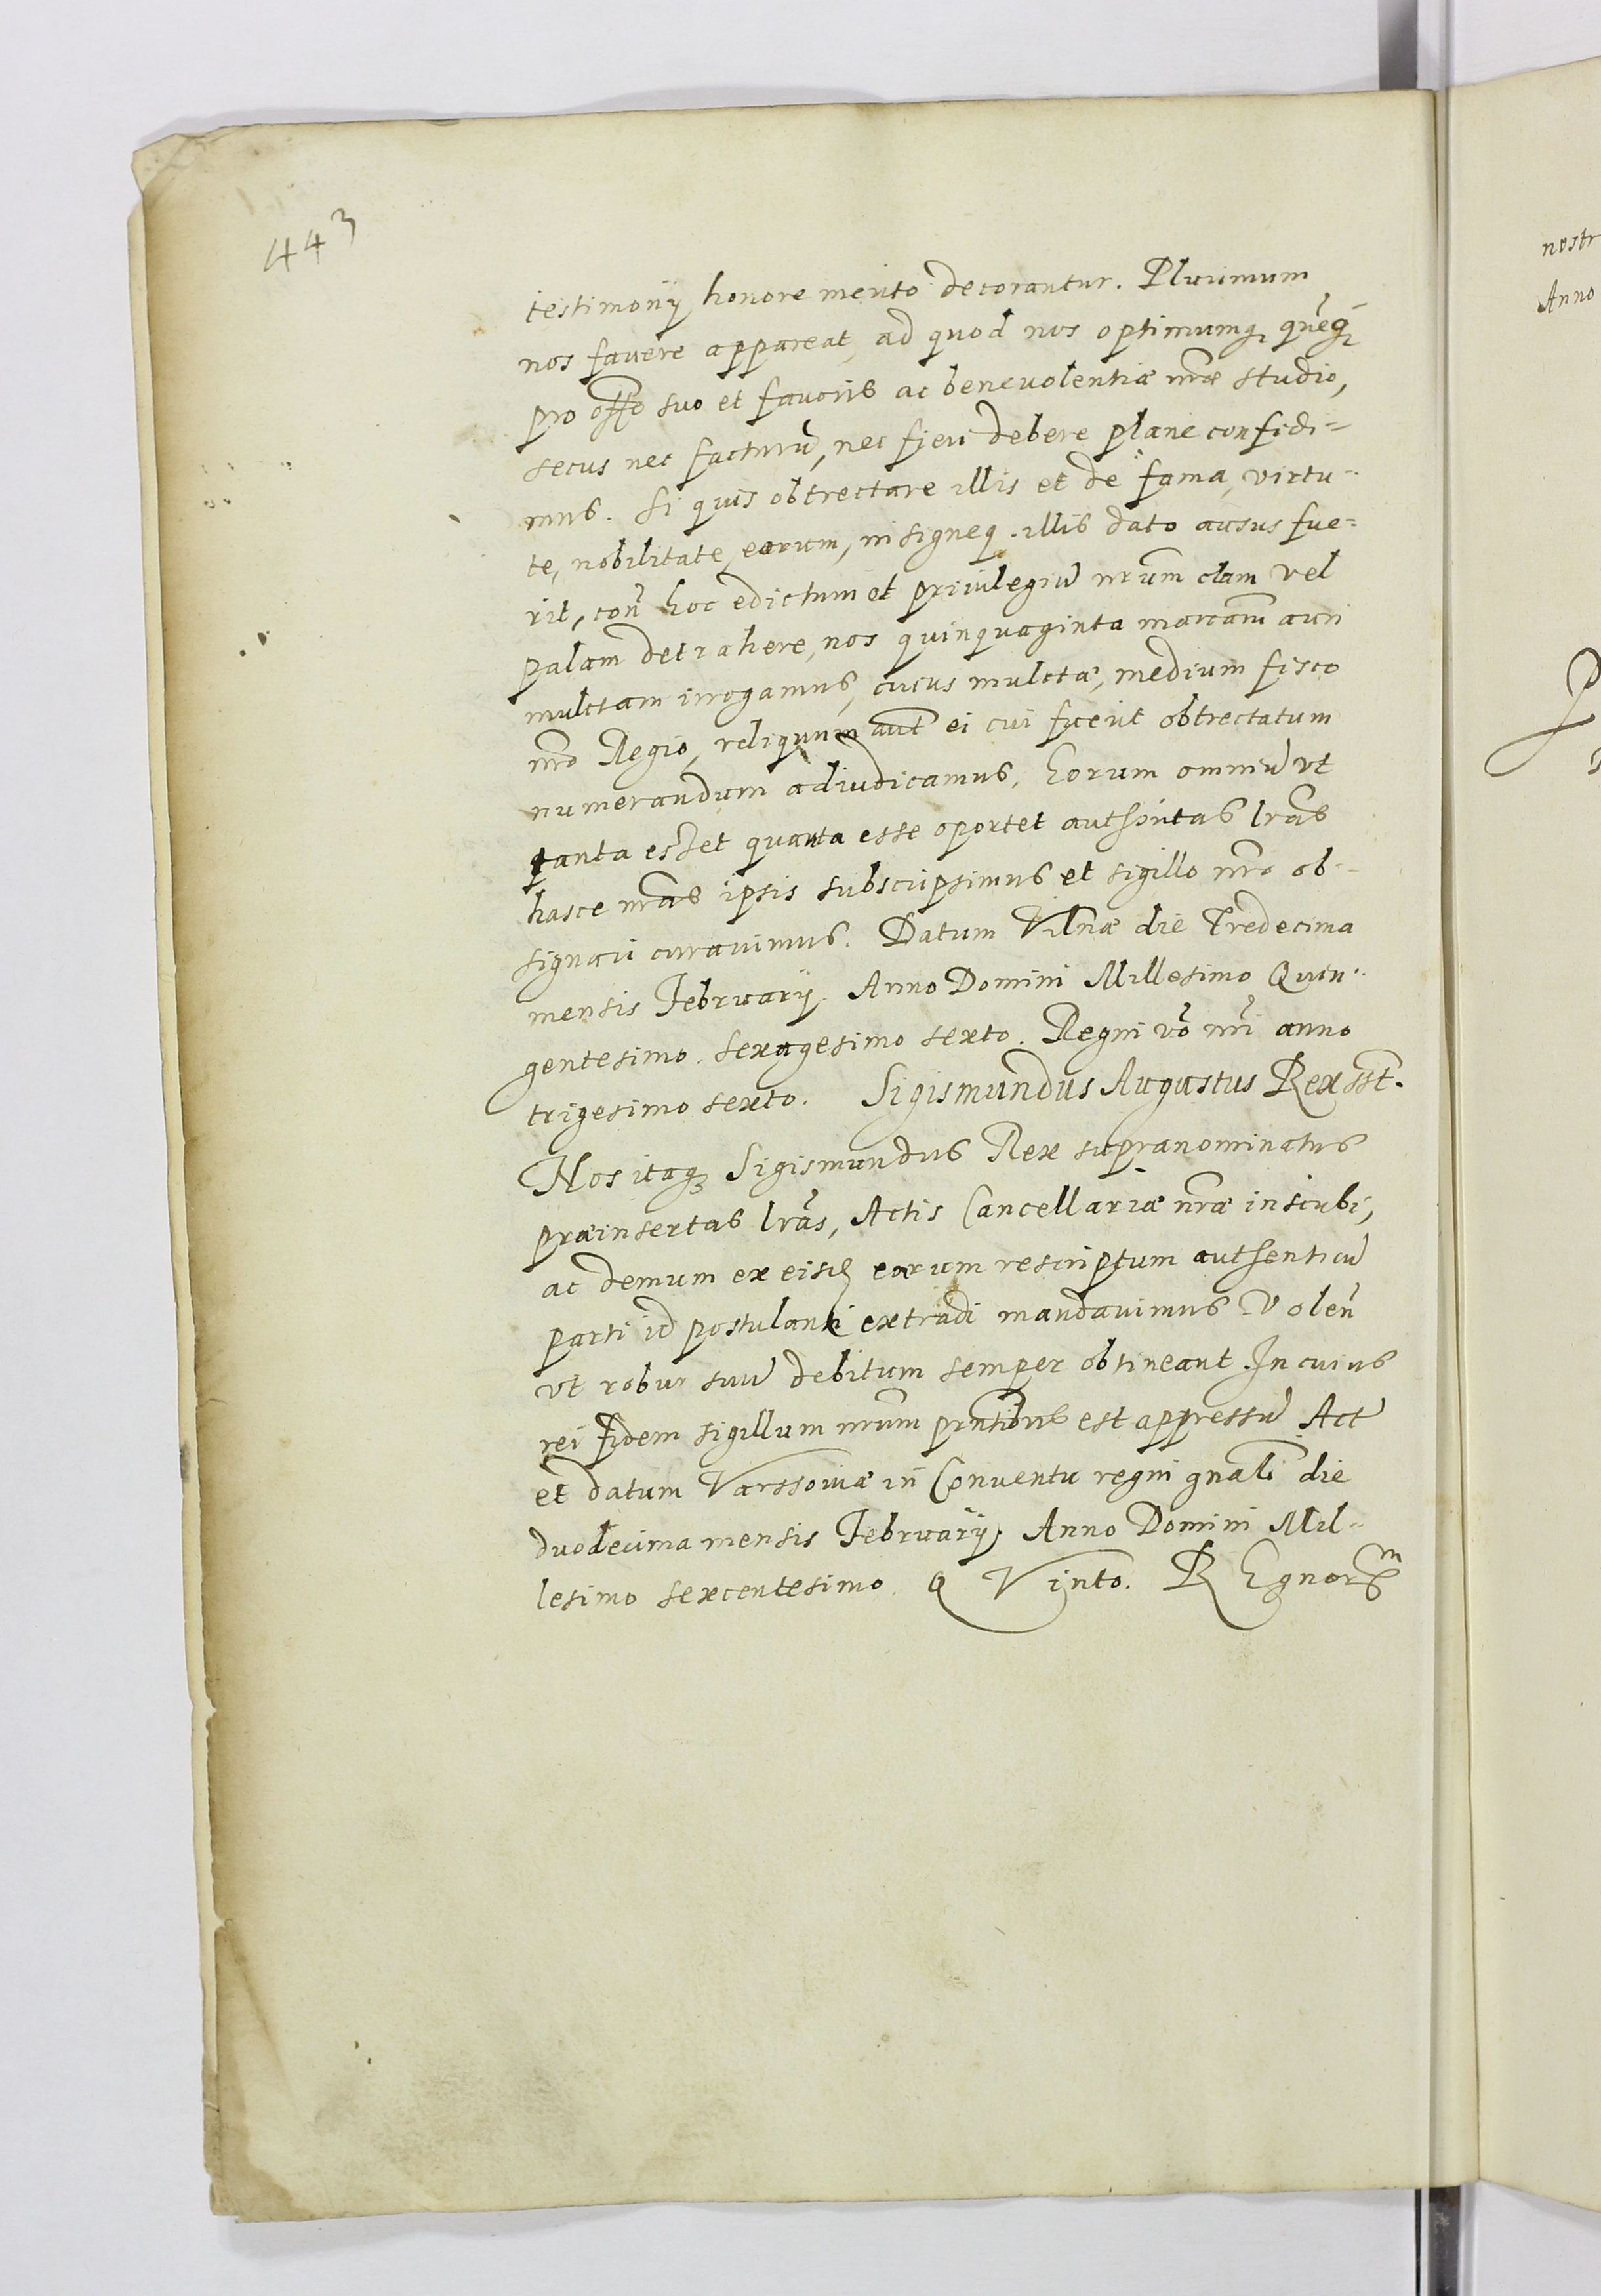 443
testimonij honore merito decorantur. Plurimum
nos favere appareat, ad quod nos optimumq quēq
pro offo suo et favoris ac benevolentiæ nræ studio,
secus nec facturū, nec fieri debere plane confidi=
mus. Si quis obtrectare illis et de fama, virtu=
te, nobilitate eorum, insigneq illis dato ausus fue=
rit, con̄ hoc edictum et priuilegiū nrum clam vel
palam detrahere, nos quinquaginta marcarū auri
mulctam irrogamus, cuius mulctæ, medium fisco
nro Regio, reliquum aut̄ ei cui fuerit obtrectatum
numerandum adiudicamus. Eorum omniū vt
tanta esset quanta esse oportet authoritas lrās
hasce nrās ipsis subscripsimus et sigillo nro ob=
signari curavimus. Datum Vilnæ die Tredecima
mensis February. Anno Domini Millesimo Quin=
gentesimo. sexagesimo sexto. Regni vō nrī anno
trigesimo sexto. Sigismundus Augustus Rex sst.
Nos itaq Sigismundus Rex supranominatus
præinsertas lrās, Actis Cancellariæ nræ inscribi,
ac demum ex eisd eorum rescriptum authenticū
parti id postulanti extradi mandavimus Volen̄
vt robur suū debitum semper obtineant. In cuius
rei fidem sigillum nrum prntibus est appressū Act
et datum Varssoviæ in Conventu regni gnali die
duodecima mensis February, Anno Domini Mil=
lesimo sexcentesimo. Q Vinto. R Egnorm
nostr
Anno